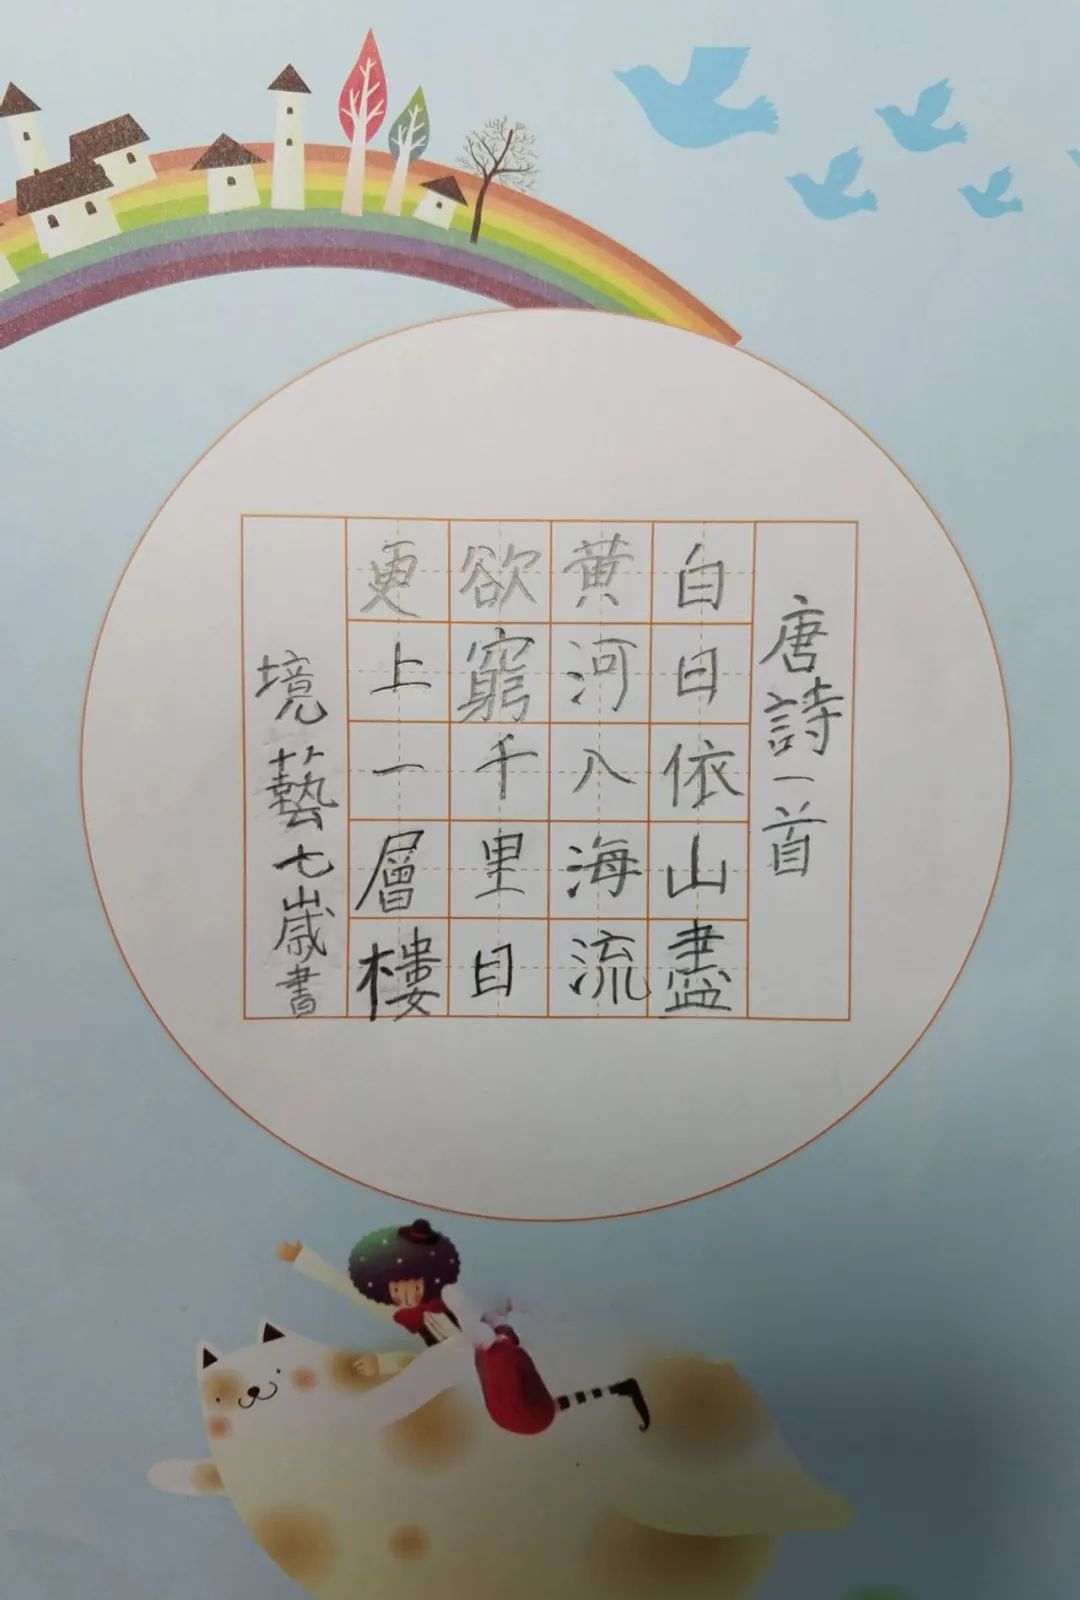 唐詩一首
白日依山盡
黄河入海流
欲窮千里目
更上一層樓
境藝七歲書